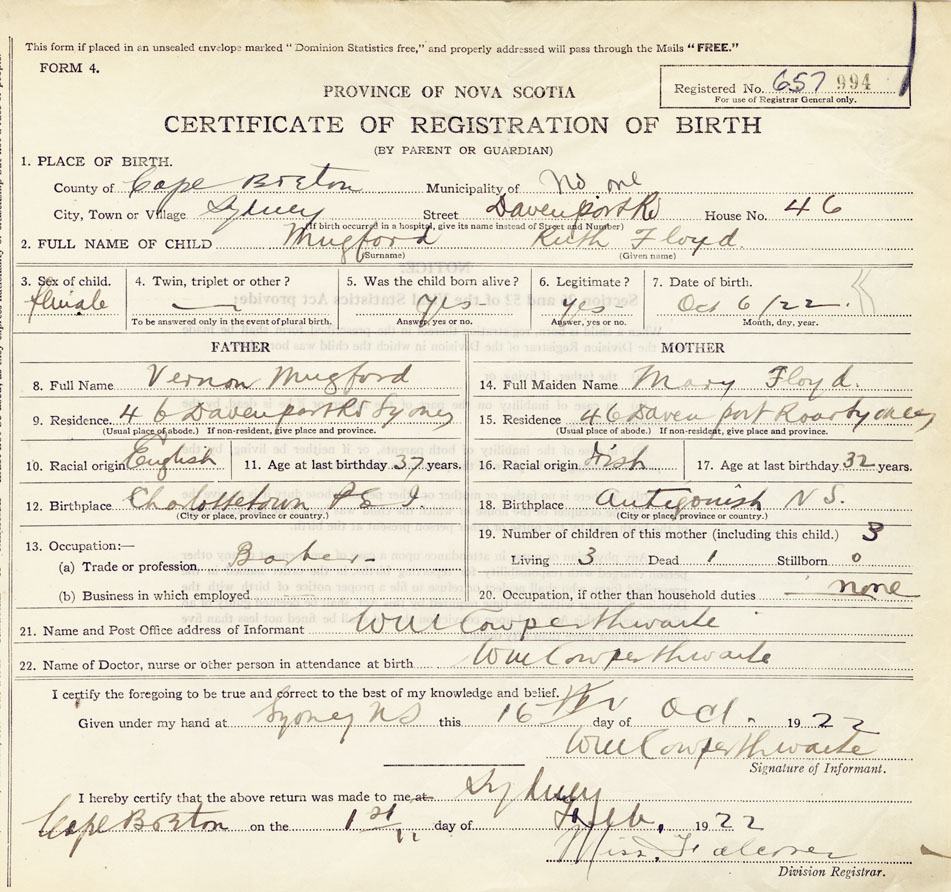 This form if placed in an unsealed envelope marked "Dominion Statistics free," and properly addressed will pass through the Mails "FREE."
FORM 4.
Registered No. 657 994
For use of Registrar General only.
PROVINCE OF NOVA SCOTIA
CERTIFICATE OF REGISTRATION OF BIRTH
(BY PARENT OR GUARDIAN)
1. PLACE OF BIRTH.
County of Cape Breton Municipality of No one
City, Town or Village Sydney Street Davenport Rd House No. 46
(If birth occurred in a hospital, give its name instead of Street and Number)
2. FULL NAME OF CHILD Mugford Ruth Floyd.
(Surname) (Given name)
3. Sex of child. 4. Twin, triplet or other? 5. Was the child born alive? 6. Legitimate? 7. Date of birth.
female — yes- yes- Oct 6 /22
To be answered only in the event of plural birth. Answer, yes or no. Answer, yes or no. Month, day, year.
FATHER MOTHER
8. Full Name Vernon Mugford 14. Full Maiden Name Mary Floyd.
9. Residence 46 Davenport Rd Sydney 15. Residence 46 Davenport Road Sydney
(Usual place of abode.) If non-resident, give place and province. (Usual place of abode.) If non-resident, give place and province.
10. Racial origin English 11. Age at last birthday 37 years. 16. Racial origin Irish 17. Age at last birthday 32 years.
12. Birthplace Charlottetown P E I. 18. Birthplace Antigonish N S.
(City or place, province or country.) (City or place, province or country.)
19. Number of children of this mother (including this child.) 3
13. Occupation:—
(a) Trade or profession Barber- Living 3 Dead 1 Stillborn 0
(b) Business in which employed 20. Occupation, if other than household duties none
21. Name and Post Office address of Informant Wm Cowperthwaite
22. Name of Doctor, nurse or other person in attendance at birth Wm Cowperthwaite
I certify the foregoing to be true and correct to the best of my knowledge and belief.
Given under my hand at Sydney NS this 16 day of Oct. 1922
Wm Cowperthwaite
Signature of Informant.
I hereby certify that the above return was made to me at Sydney
Cape Breton on the 1st day of 1922
Miss. Falconer
Division Registrar.